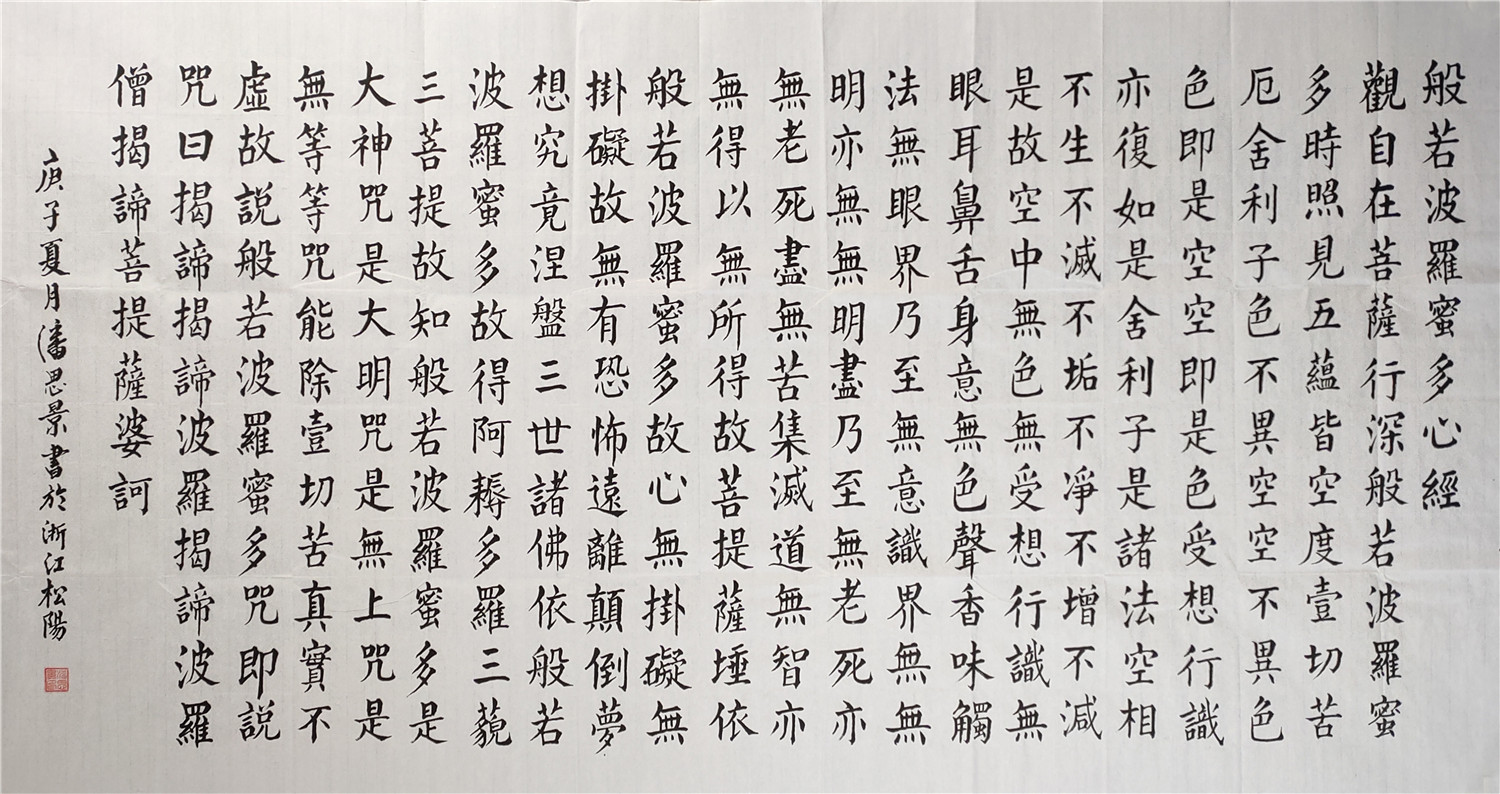 般若波羅蜜多心經
觀自在菩薩行深般若波羅蜜
多時照見五蘊皆空度壹切苦
厄舍利子色不異空空不異色
色即是空空即是色受想行識
亦復如是舍利子是諸法空相
不生不滅不垢不淨不增不減
是故空中無色無受想行識無
眼耳鼻舌身意無色聲香味觸
法無眼界乃至無意識界無無
明亦無無明盡乃至無老死亦
無老死盡無苦集滅道無智亦
無得以無所得故菩提薩埵依
般若波羅蜜多故心無掛礙無
掛礙故無有恐怖遠離顛倒夢
想究竟涅盤三世諸佛依般若
波羅蜜多故得阿耨多羅三藐
三菩提故知般若波羅蜜多是
大神咒是大明咒是無上咒是
無等等咒能除壹切苦真實不
虛故説般若波羅蜜多咒即説
咒曰揭諦揭諦波羅揭諦波羅
僧揭諦菩提薩婆訶
庚子夏月潘思景書於浙江松陽